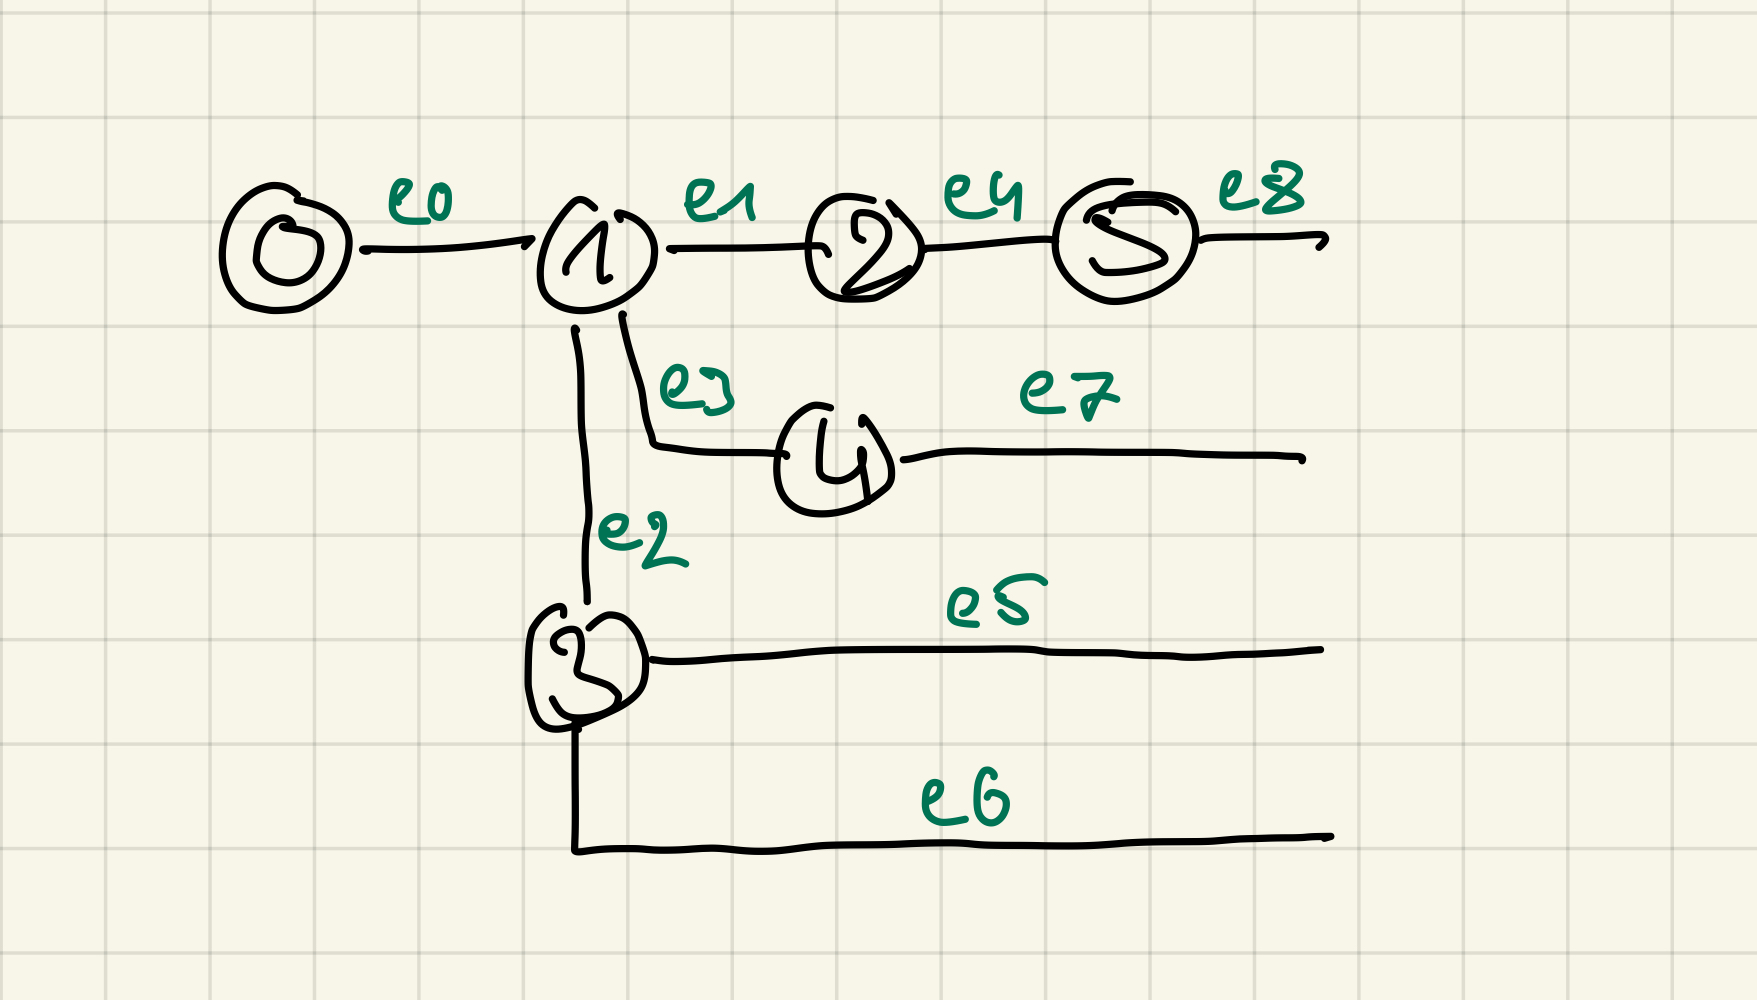 0 e0 1 e1 2 e4 5 e8
e3 4 e7
e2
3 e5
e6